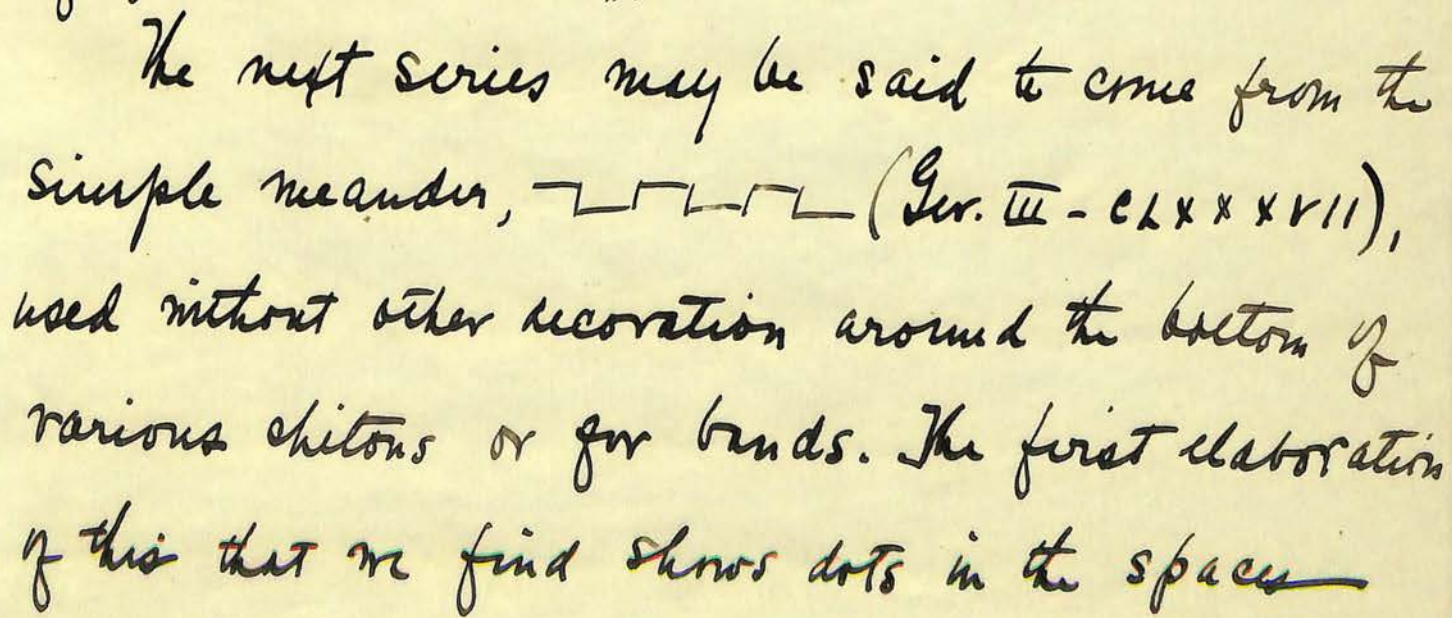 The next series may be said to come from the
simple meander, (Ger. III - CLXXXVII),
used without other decoration around the bottom of
various chitons or for bands. The first elaboration
of this that we find shows dots in the spaces